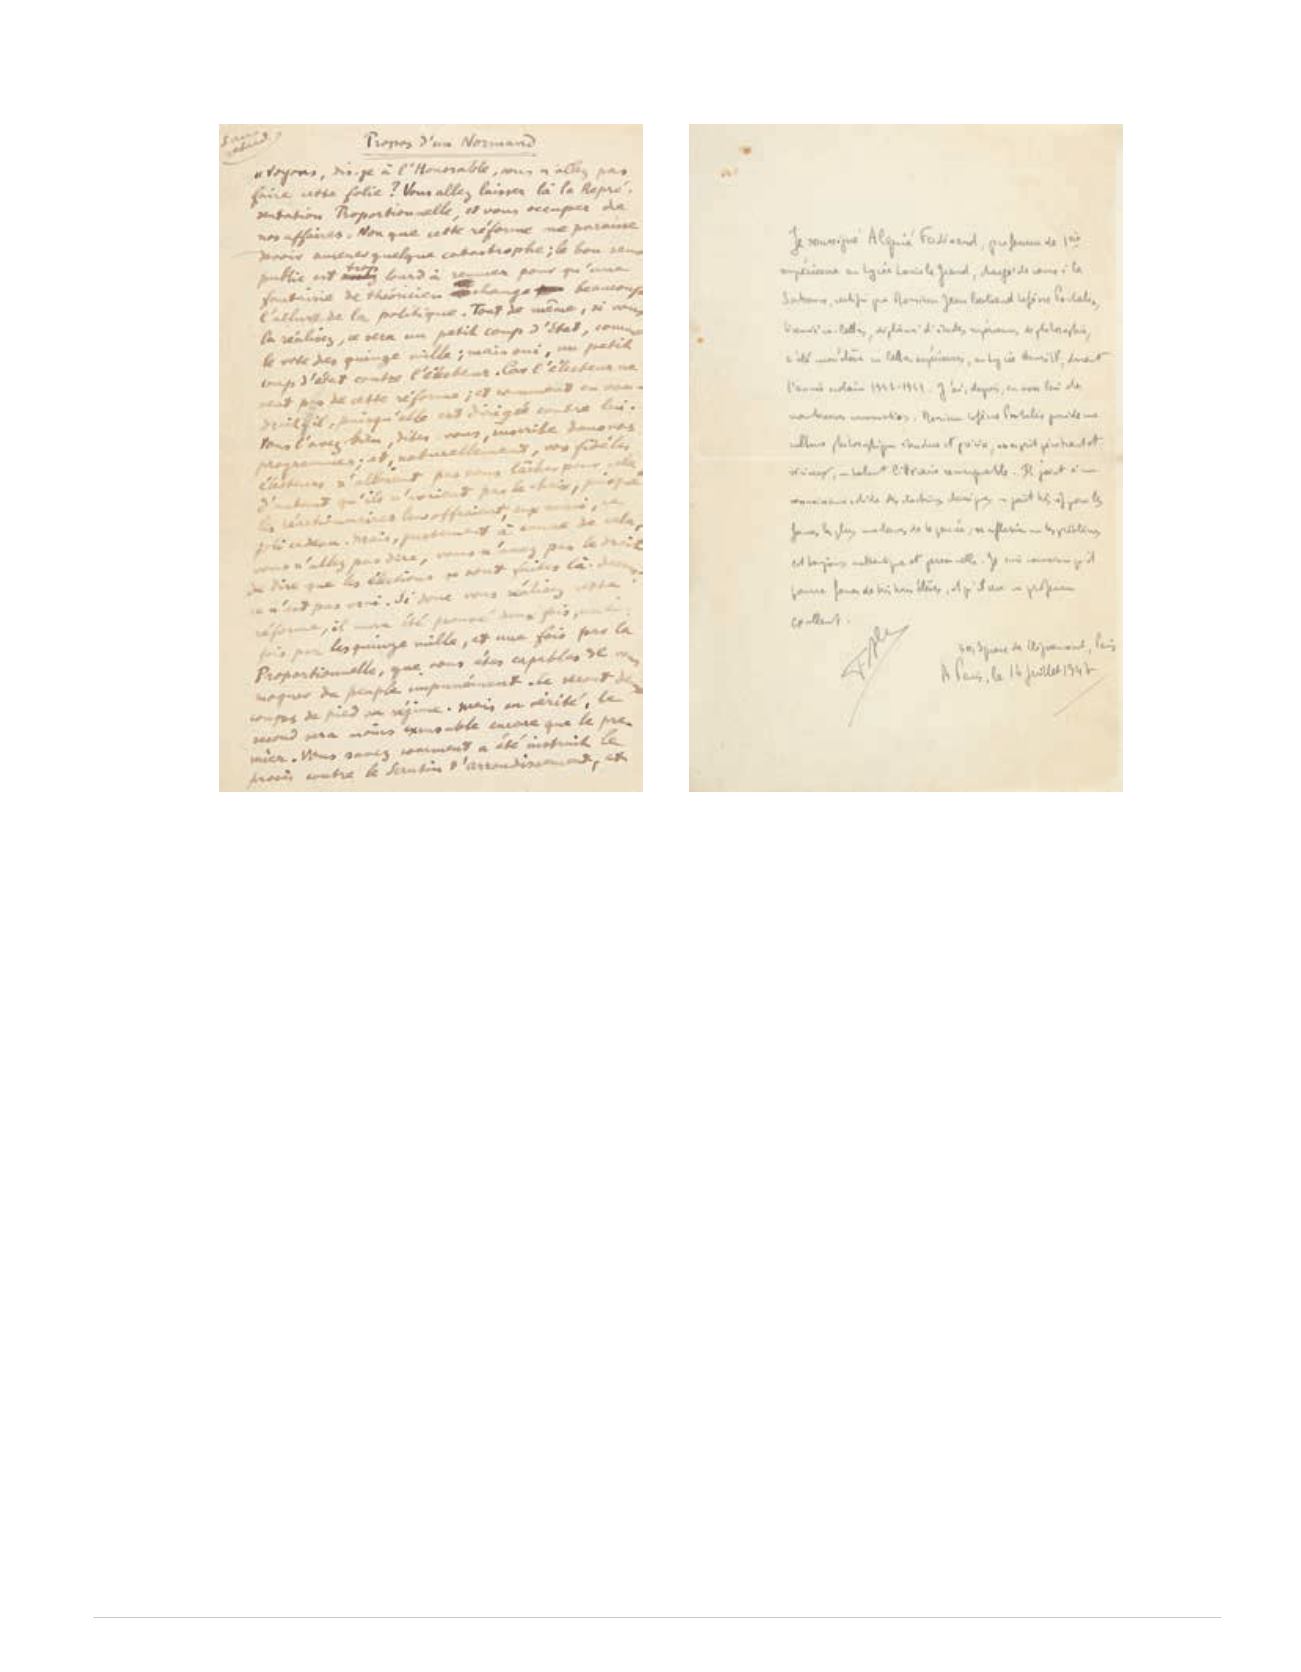 Propos d'un Normand
« Voyons, dis-je à l'Honorable, vous n'allez pas
faire cette folie ? Vous allez laisser là la Repré-
sentation Proportionnelle, et vous occuper de
nos affaires. Non que cette réforme me paraisse
devoir amener quelque catastrophe ; le bon sens
public est trop lourd à remuer pour qu'une
fantaisie de théoricien change beaucoup
l'allure de la politique. Tout de même, si vous
la réalisez, ce sera un petit coup d'état, comme
le vote des quinze mille ; mais oui, un petit
coup d'état contre l'électeur. Car l'électeur ne
veut pas de cette réforme ; et comment en vou-
drait-il, puisqu'elle est dirigée contre lui.
Vous l'avez bien, dites vous, inscrite dans vos
programmes ; et, naturellement, vos fidèles
électeurs n'allaient pas vous lâcher pour cela,
d'autant qu'ils n'avaient pas le choix, puisque
les réactionnaires leur offraient, eux aussi, ce
joli cadeau. Mais, justement à cause de cela,
vous n'allez pas dire, vous n'avez pas le droit
de dire que les élections se sont faites là-dessus,
ce n'est pas vrai. Si donc vous réalisez cette
réforme, il aura été prouvé deux fois, une
fois par les quinze mille, et une fois par la
Proportionnelle, que vous êtes capables de vous
moquer du peuple impunément. Ce seront des
coups de pied au régime. Mais en vérité, le
second sera moins excusable encore que le pre-
mier. Vous savez comment a été instruit le
procès contre le Scrutin d'arrondissement, et
Je soussigné Alquié Ferdinand, professeur de 1ère
supérieure au Lycée Louis le Grand, chargé de cours à la
Sorbonne, certifie que Monsieur Jean Bertrand Lefèvre Portalis,
licencié ès-lettres, diplômé d'études supérieures de philosophie,
a été mon élève en lettres supérieures, au Lycée, durant
l'année scolaire. J'ai, depuis, eu avec lui de
nombreuses conversations. Monsieur Lefèvre Portalis possède une
culture philosophique étendue et précise, un esprit pénétrant et
sérieux, un talent littéraire remarquable. Il joint à une
connaissance solide des doctrines classiques un goût très vif pour les
formes les plus modernes de la pensée, sa réflexion sur les problèmes
est toujours authentique et personnelle. Je suis convaincu qu'il
pourra former de très bons élèves, et qu'il sera un professeur
excellent.
Square de Clignancourt, Paris
A Paris, le 16 juillet